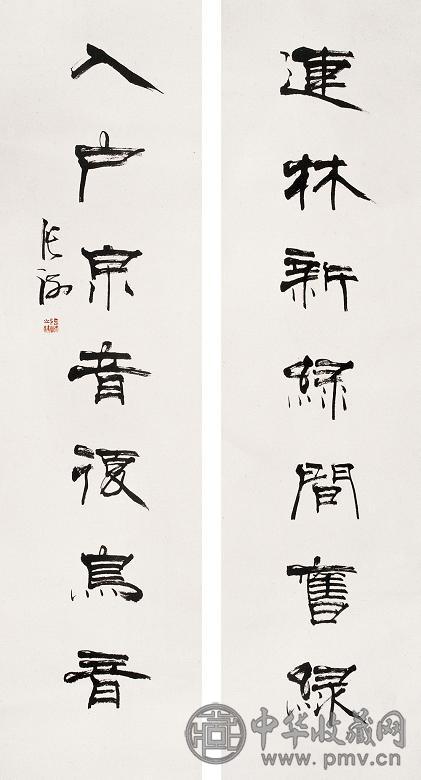 連林新綠間舊綠
入户泉音復鳥音
张海
中华收藏网
www.pmv.cn